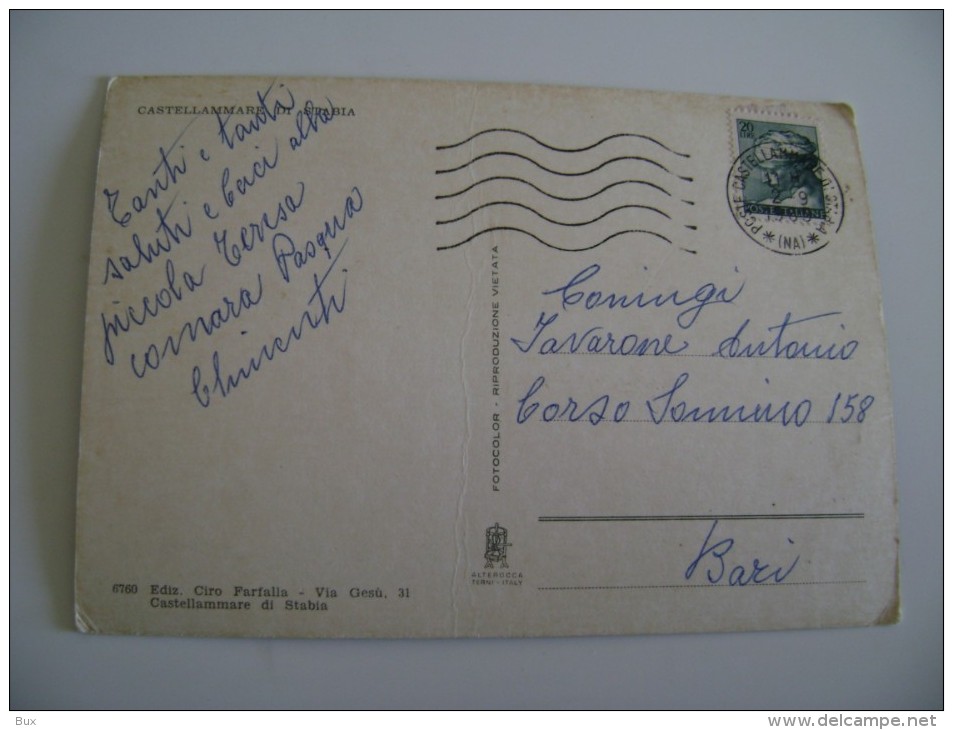 CASTELLAMMARE DI STABIA
Tanti e tanti
saluti e baci alla
piccola Teresa
comara Pasqua
Chimenti
6760 Ediz. Ciro Farfalla - Via Gesù, 31
Castellammare di Stabia
FOTOCOLOR - RIPRODUZIONE VIETATA
ALTEROCCA
TERNI - ITALY
20
POSTE ITALIANE
POSTE CASTELLAMMARE DI STABIA
(NA)
Coniugi
Tavarone Antonio
Corso Sonnino 158
Bari
Bux
www.delcampe.net